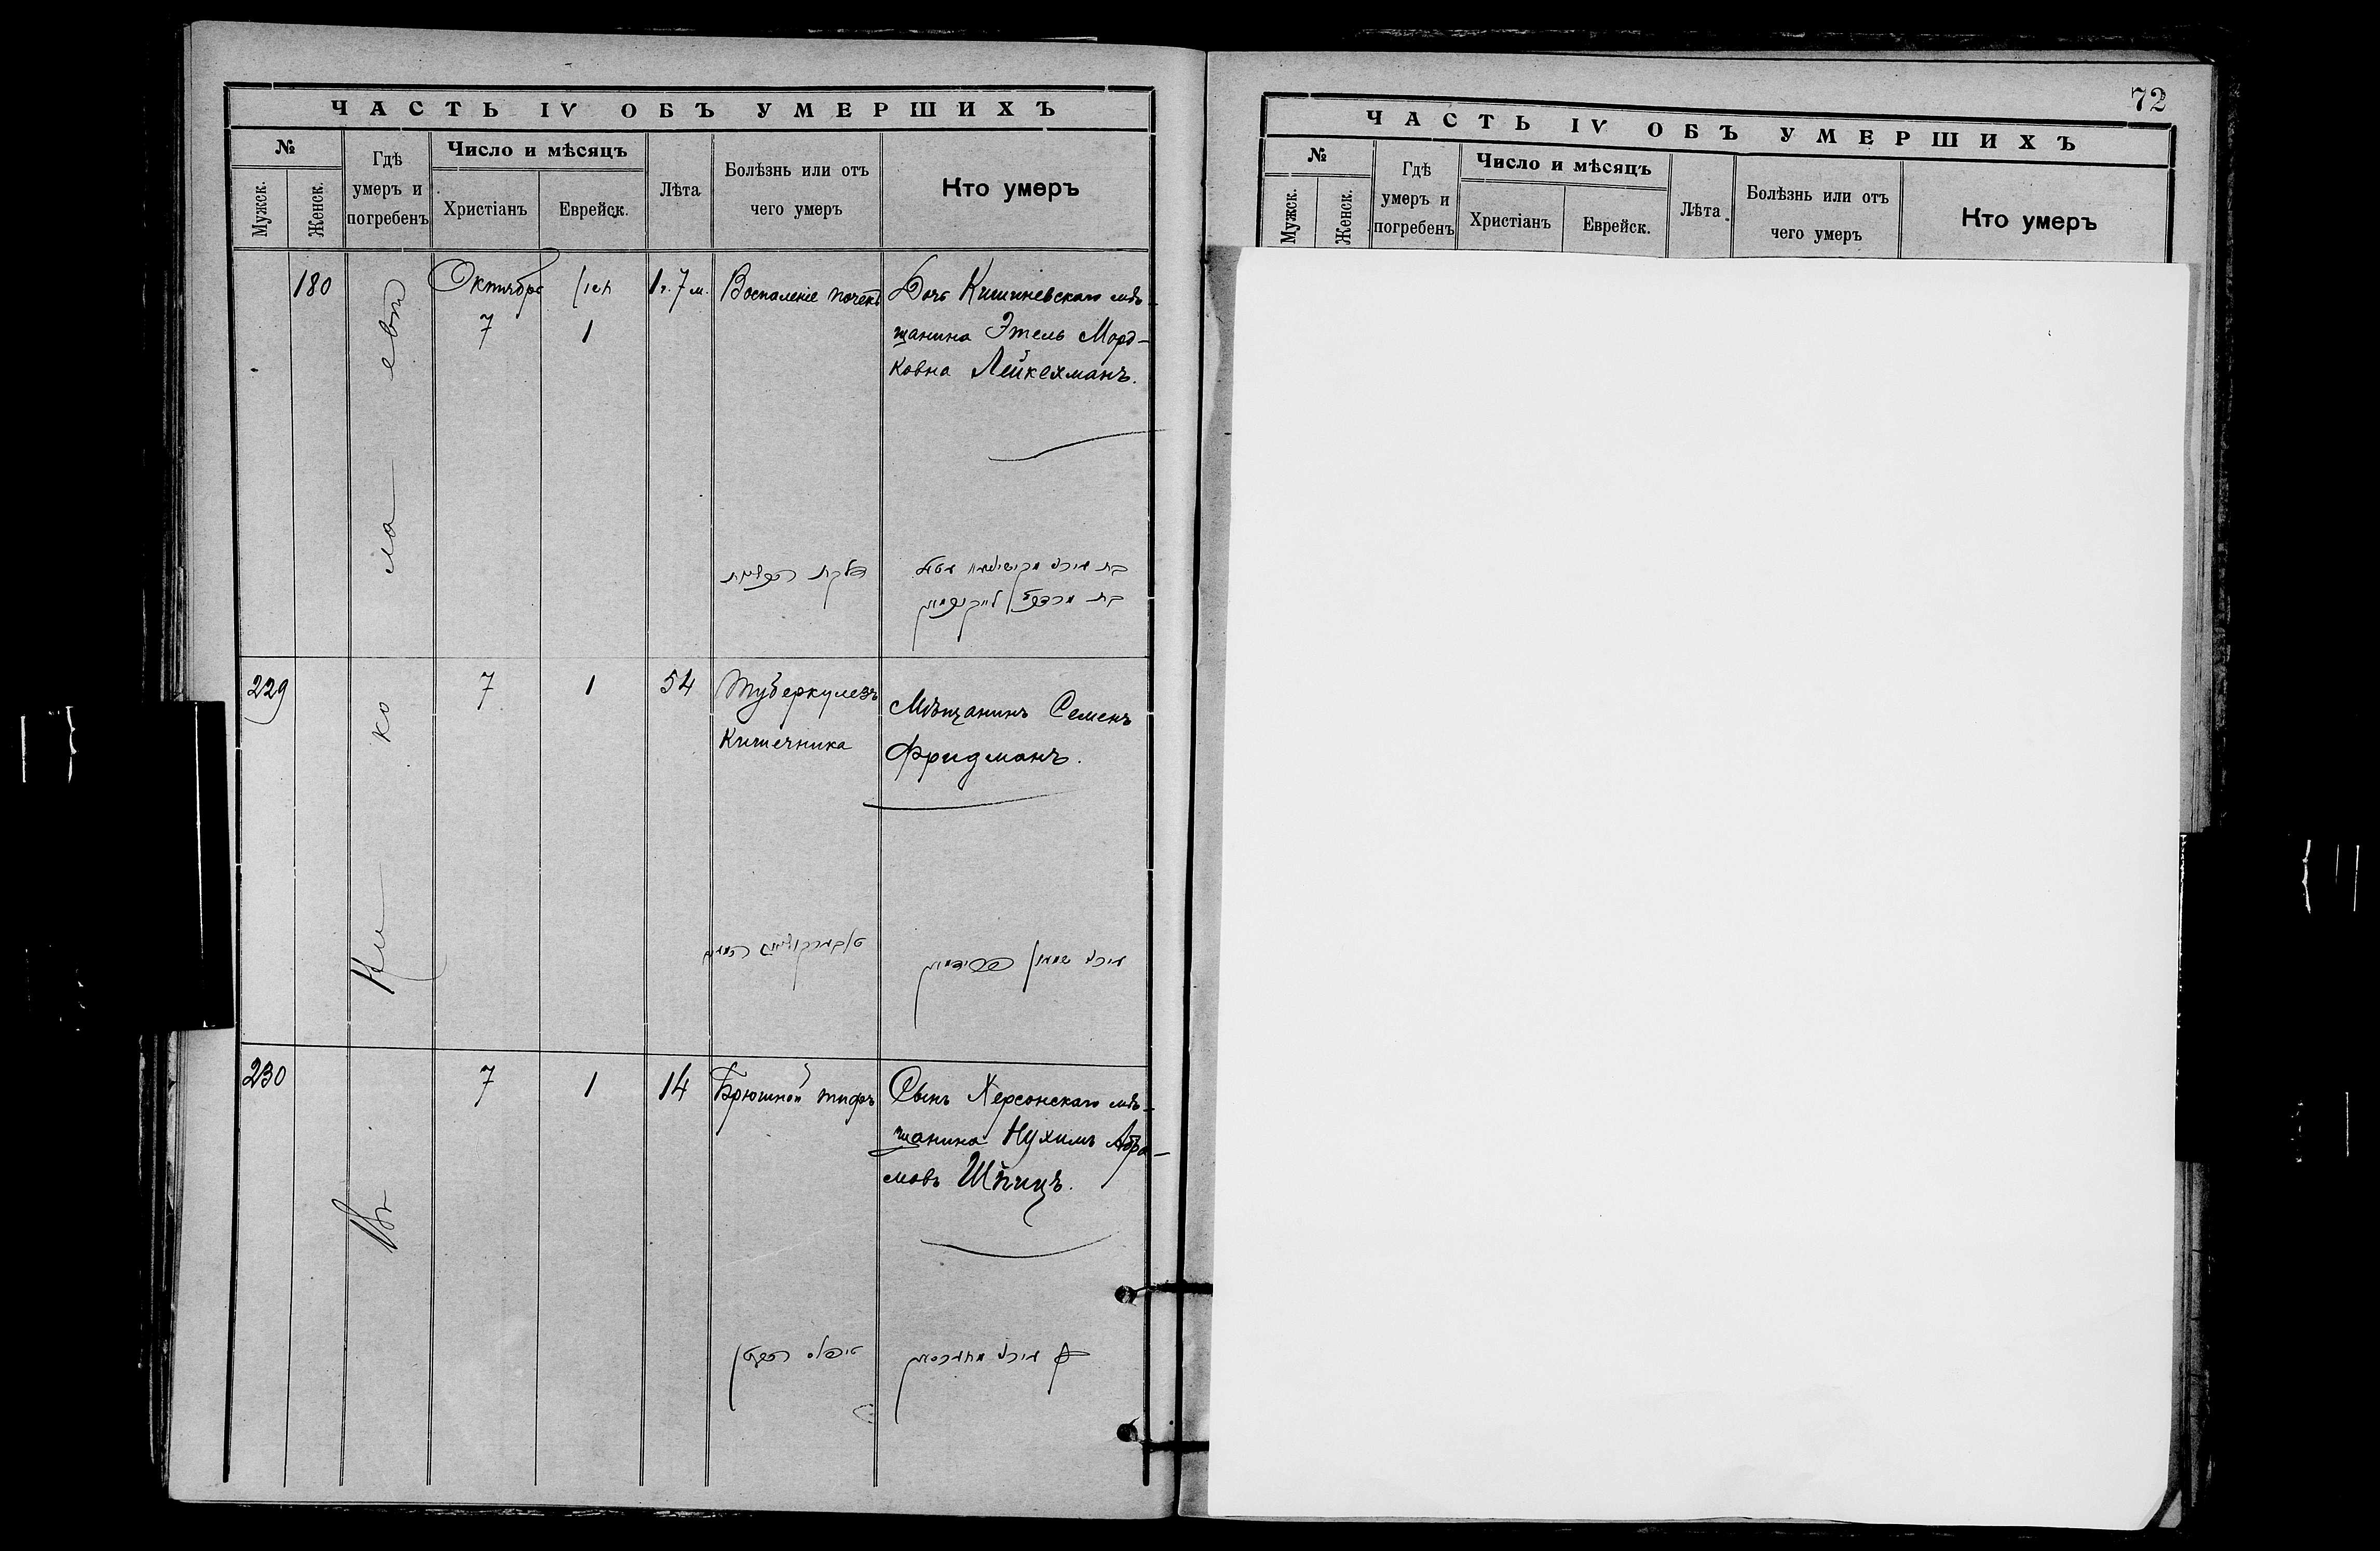 ЧАСТЬ IV ОБЪ УМЕРШИХЪ
№
Мужск.
Женск.
Гдѣ умеръ и погребенъ
Число и мѣсяцъ
Христіанъ
Еврейск.
Лѣта
Болѣзнь или отъ чего умеръ
Кто умеръ
180
Октябрь
7
1
1 г. 7 м.
Воспаленіе почекъ
Дочь Кишиневскаго мѣ-
щанина Этель Морд-
ковна Лейкехманъ.
229
7
1
54
Туберкулезъ
Кишечника
Мѣщанинъ Семенъ
Фридманъ.
230
7
1
14
Брюшной тифъ
Сынъ Херсонскаго мѣ-
щанина Нухимъ Абра-
мовъ Шпицъ.
Въ Ни ко ла евѣ
72
ЧАСТЬ IV ОБЪ УМЕРШИХЪ
№
Мужск.
Женск.
Гдѣ умеръ и погребенъ
Число и мѣсяцъ
Христіанъ
Еврейск.
Лѣта
Болѣзнь или отъ чего умеръ
Кто умеръ